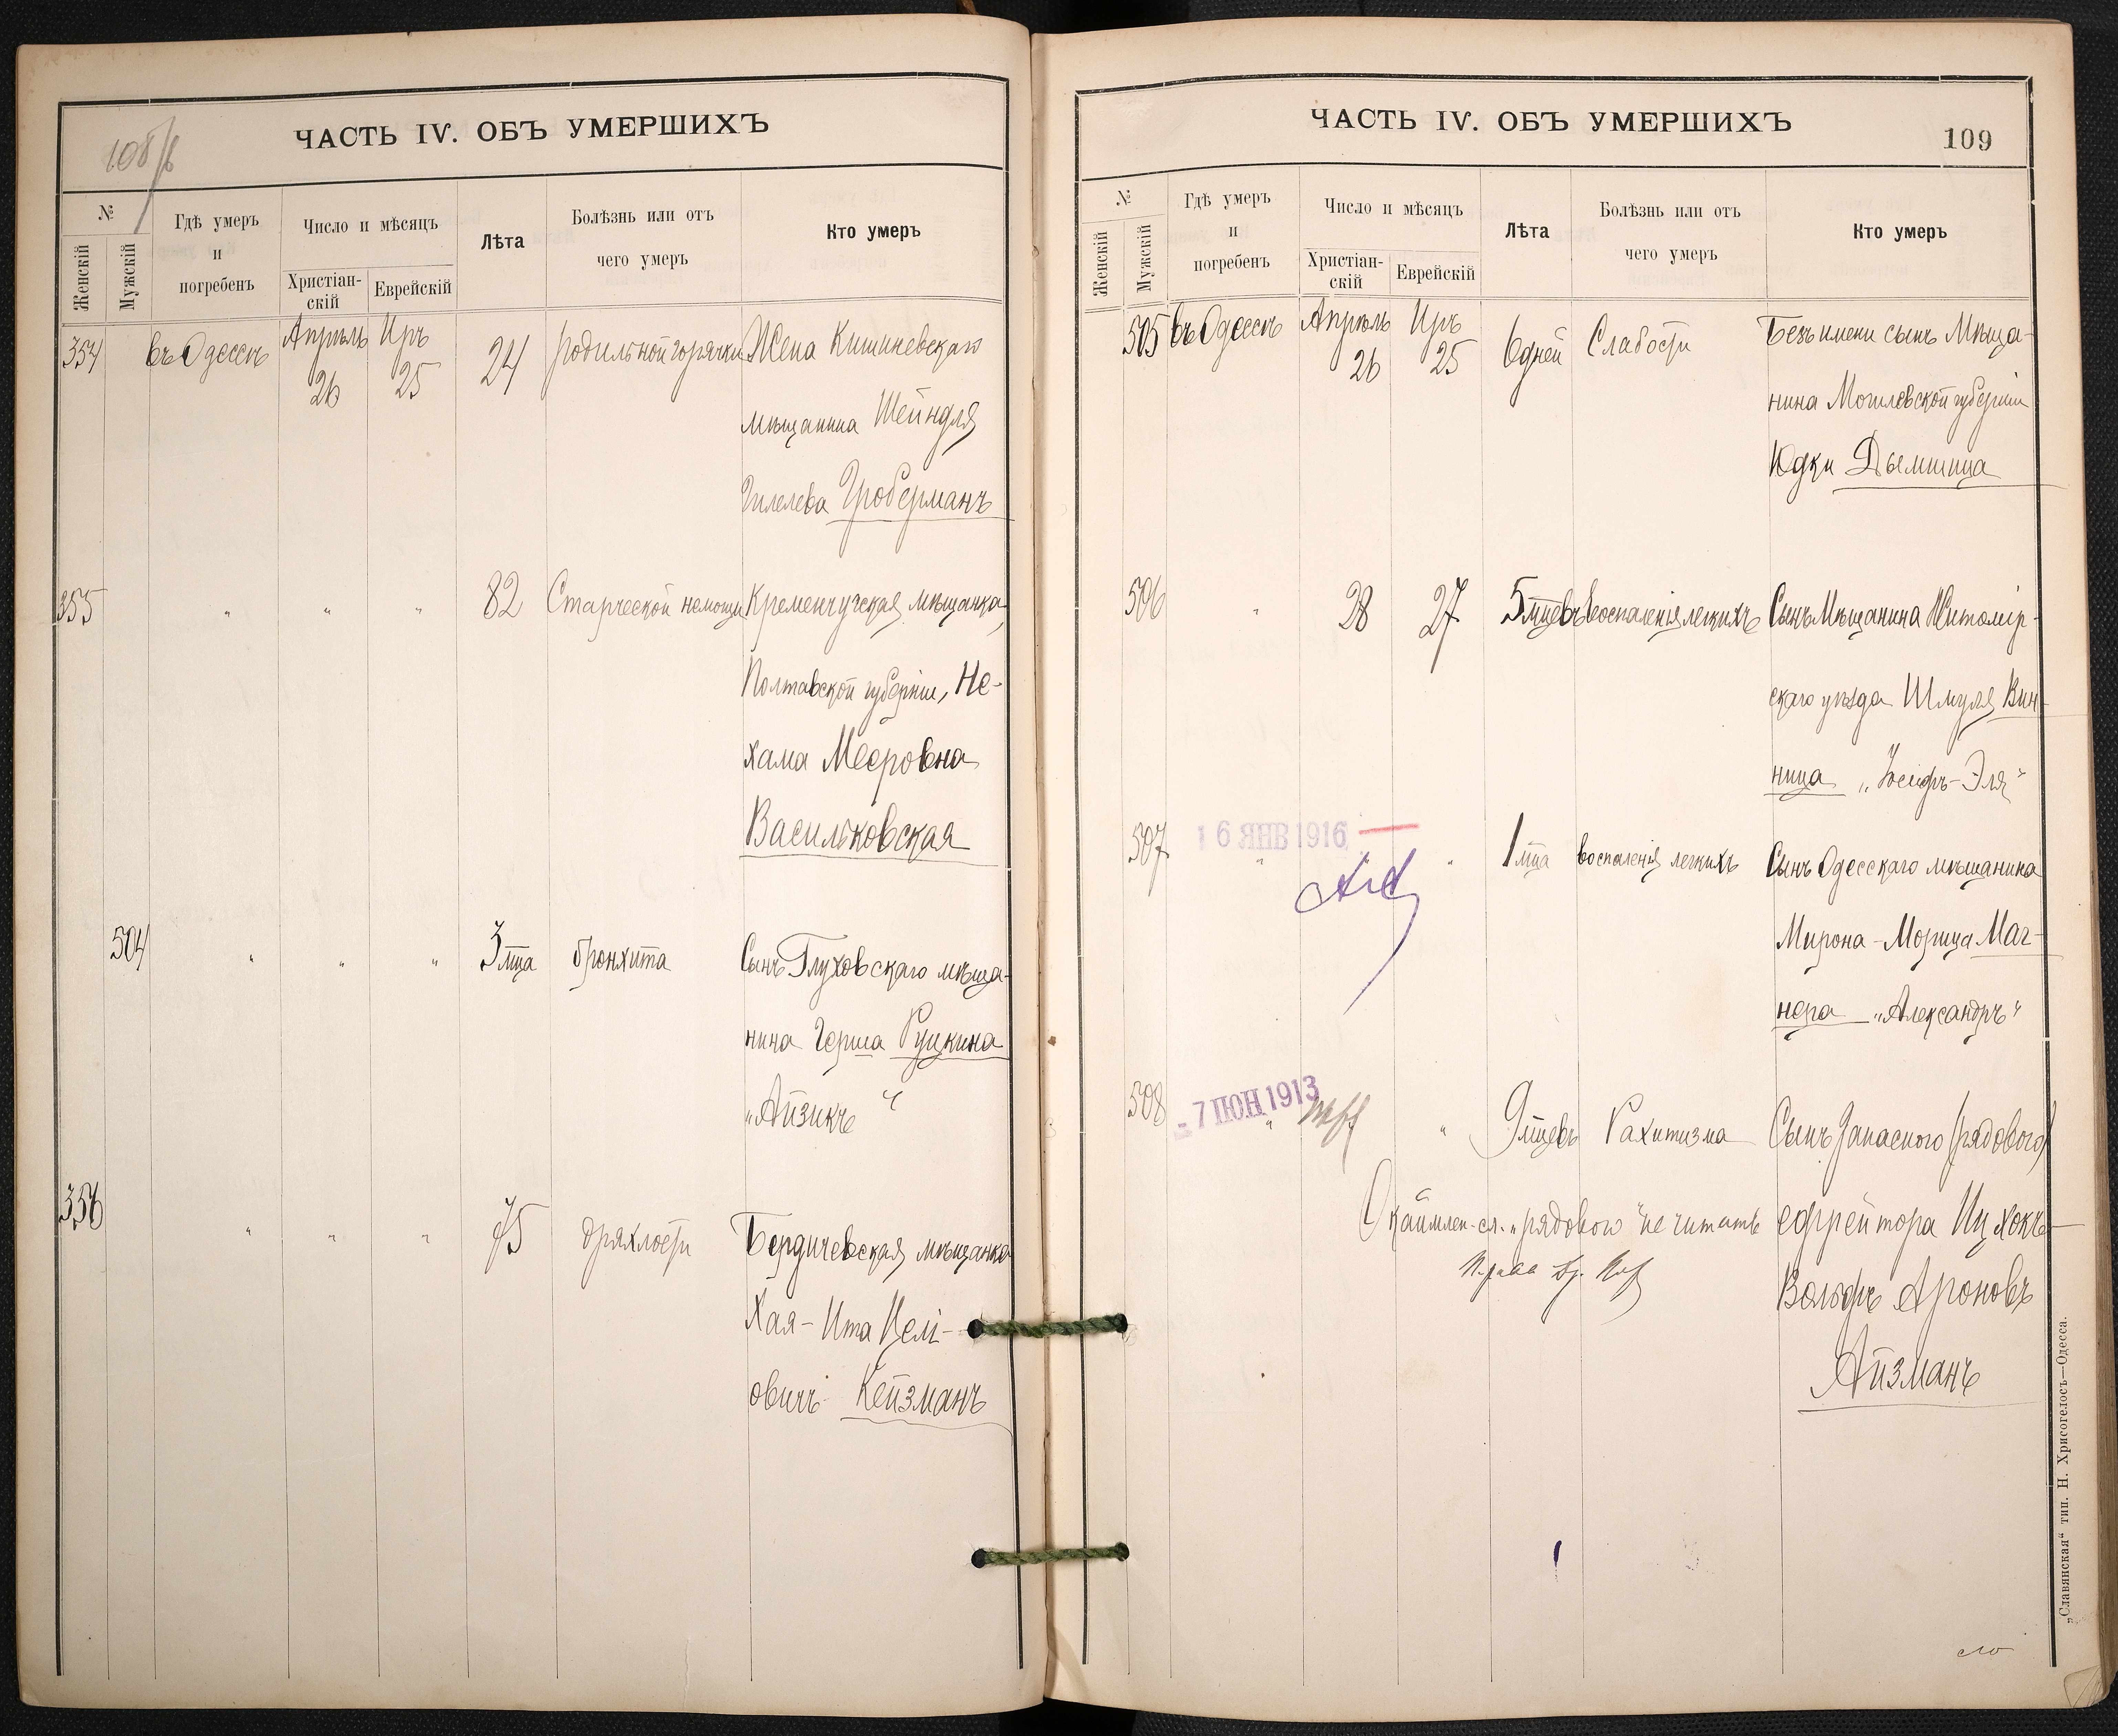 108/б
ЧАСТЬ IV. ОБЪ УМЕРШИХЪ
№
Женскій
Мужскій
Гдѣ умеръ
и
погребенъ
Число и мѣсяцъ
Христіан-
скій
Еврейскій
Лѣта
Болѣзнь или отъ
чего умеръ
Кто умеръ
354 въ Одессѣ Апрѣль 26 Иръ 25 24 родильной горячки Жена Кишиневскаго
мѣщанина Шейндля
Гилелева Гроберманъ
355 " " " 82 Старческой немощи Кременчугская мѣщанка,
Полтавской губерніи, Не-
хама Мееровна
Васильковская
504 " " " 3 мца бронхита Сынъ Глуховскаго мѣща-
нина Герша Руцкина
„Айзикъ"
356 " " " 75 дряхлости Бердичевская мѣщанка
Хая-Ита Целі-
овичъ Кейзманъ
ЧАСТЬ IV. ОБЪ УМЕРШИХЪ
109
№
Женскій
Мужскій
Гдѣ умеръ
и
погребенъ
Число и мѣсяцъ
Христіан-
скій
Еврейскій
Лѣта
Болѣзнь или отъ
чего умеръ
Кто умеръ
505 въ Одессѣ Апрѣль 26 Иръ 25 6 дней Слабости Безъ имени сынъ Мѣща-
нина Могилевской губерніи
Юдки Дымшица
506 " 28 27 5 мцевъ воспаленія легкихъ Сынъ Мѣщанина Житомір-
скаго уѣзда Шмуля Вин-
ница „Іосифъ-Эля"
16 ЯНВ 1916
507 " " 1 мца воспаленія легкихъ Сынъ Одесскаго мѣщанина
Мирона-Морица Маг-
нера „Александръ"
- 7 ІЮН 1913
508 " " 9 мцевъ Рахитизма Сынъ Запаснаго (рядового)
ефрейтора Ицхокъ-
Вольфъ Ароновъ
Айзманъ
Окаймлен. сл. „рядового" не читать
„Славянская" тип. Н. Хрисогелосъ—Одесса.